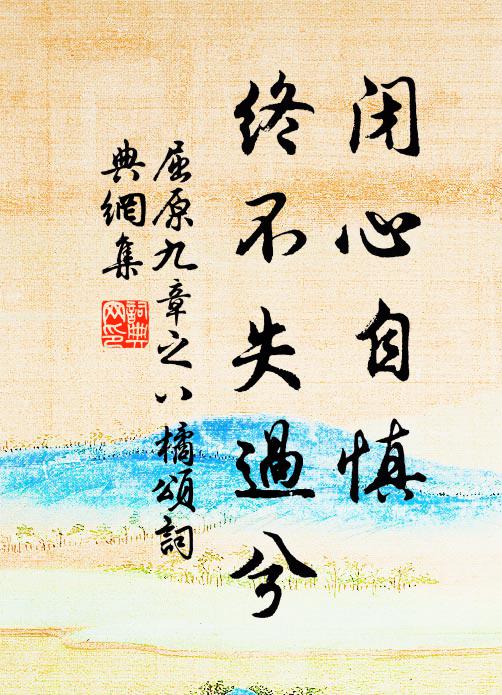 闭心自慎
终不失過兮
屈原九章之八橘頌詞
典網集
詞典网印